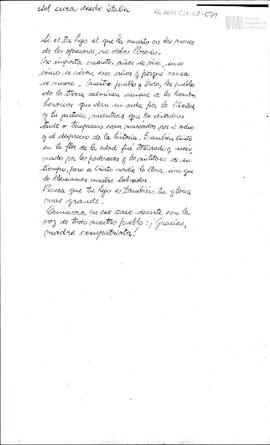 del cura desde Italia
Si es tu hijo el que ha muerto en las manos
de los opresores, no debes llorarlo.
No importa cuántos años se vive, sino
cómo se viven esos años y porqué causa
se muere. Nuestro pueblo y todos los pueblos
de la tierra admiran siempre a los hombres
heroicos que dan su vida por la libertad
y la justicia, mientras que los dictadores
tarde o temprano caen marcados por el odio
y el desprecio de la historia. También Cristo
en la flor de la edad fué torturado y asesi
nado por los poderosos y los militares de su
tiempo, pero a Cristo nadie lo llora, sino que
lo llamamos nuestro salvador.
Piensa que tu hijo es también tu gloria
mas grande.
en ese caso decirte con la
voz de todo nuestro pueblo: ¡Gracias,
madre compatriota!